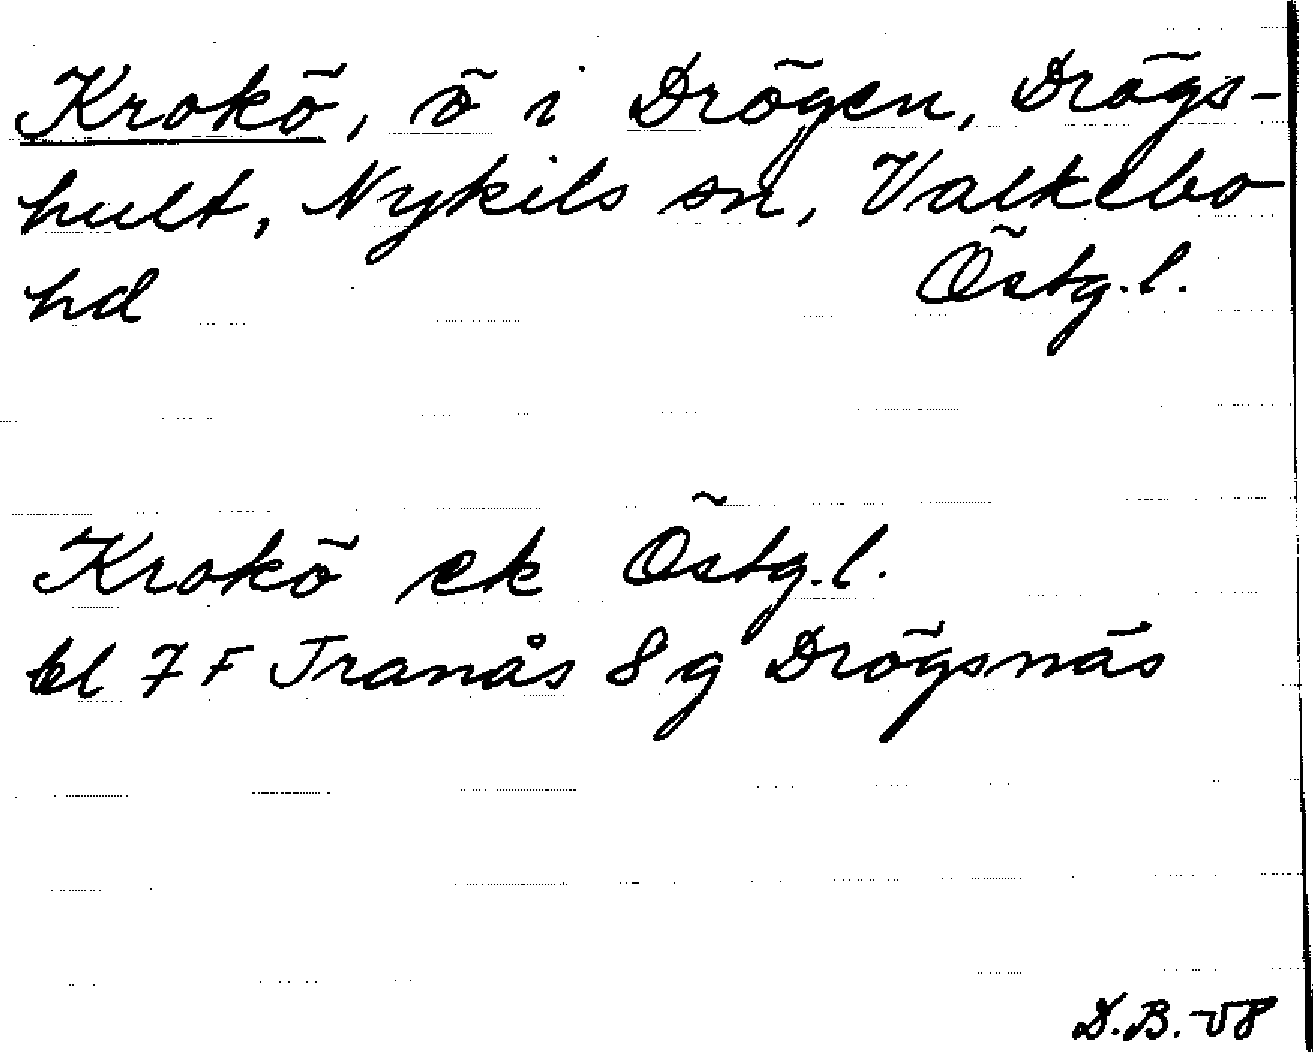 Krokö, ö i Drögen, Drögs-
hult, Nykils sn, Valkebo
hd Östg.l.
Krokö ek Östg.l.
bl 7F Tranås 8g Drögsnäs
D.B. -58